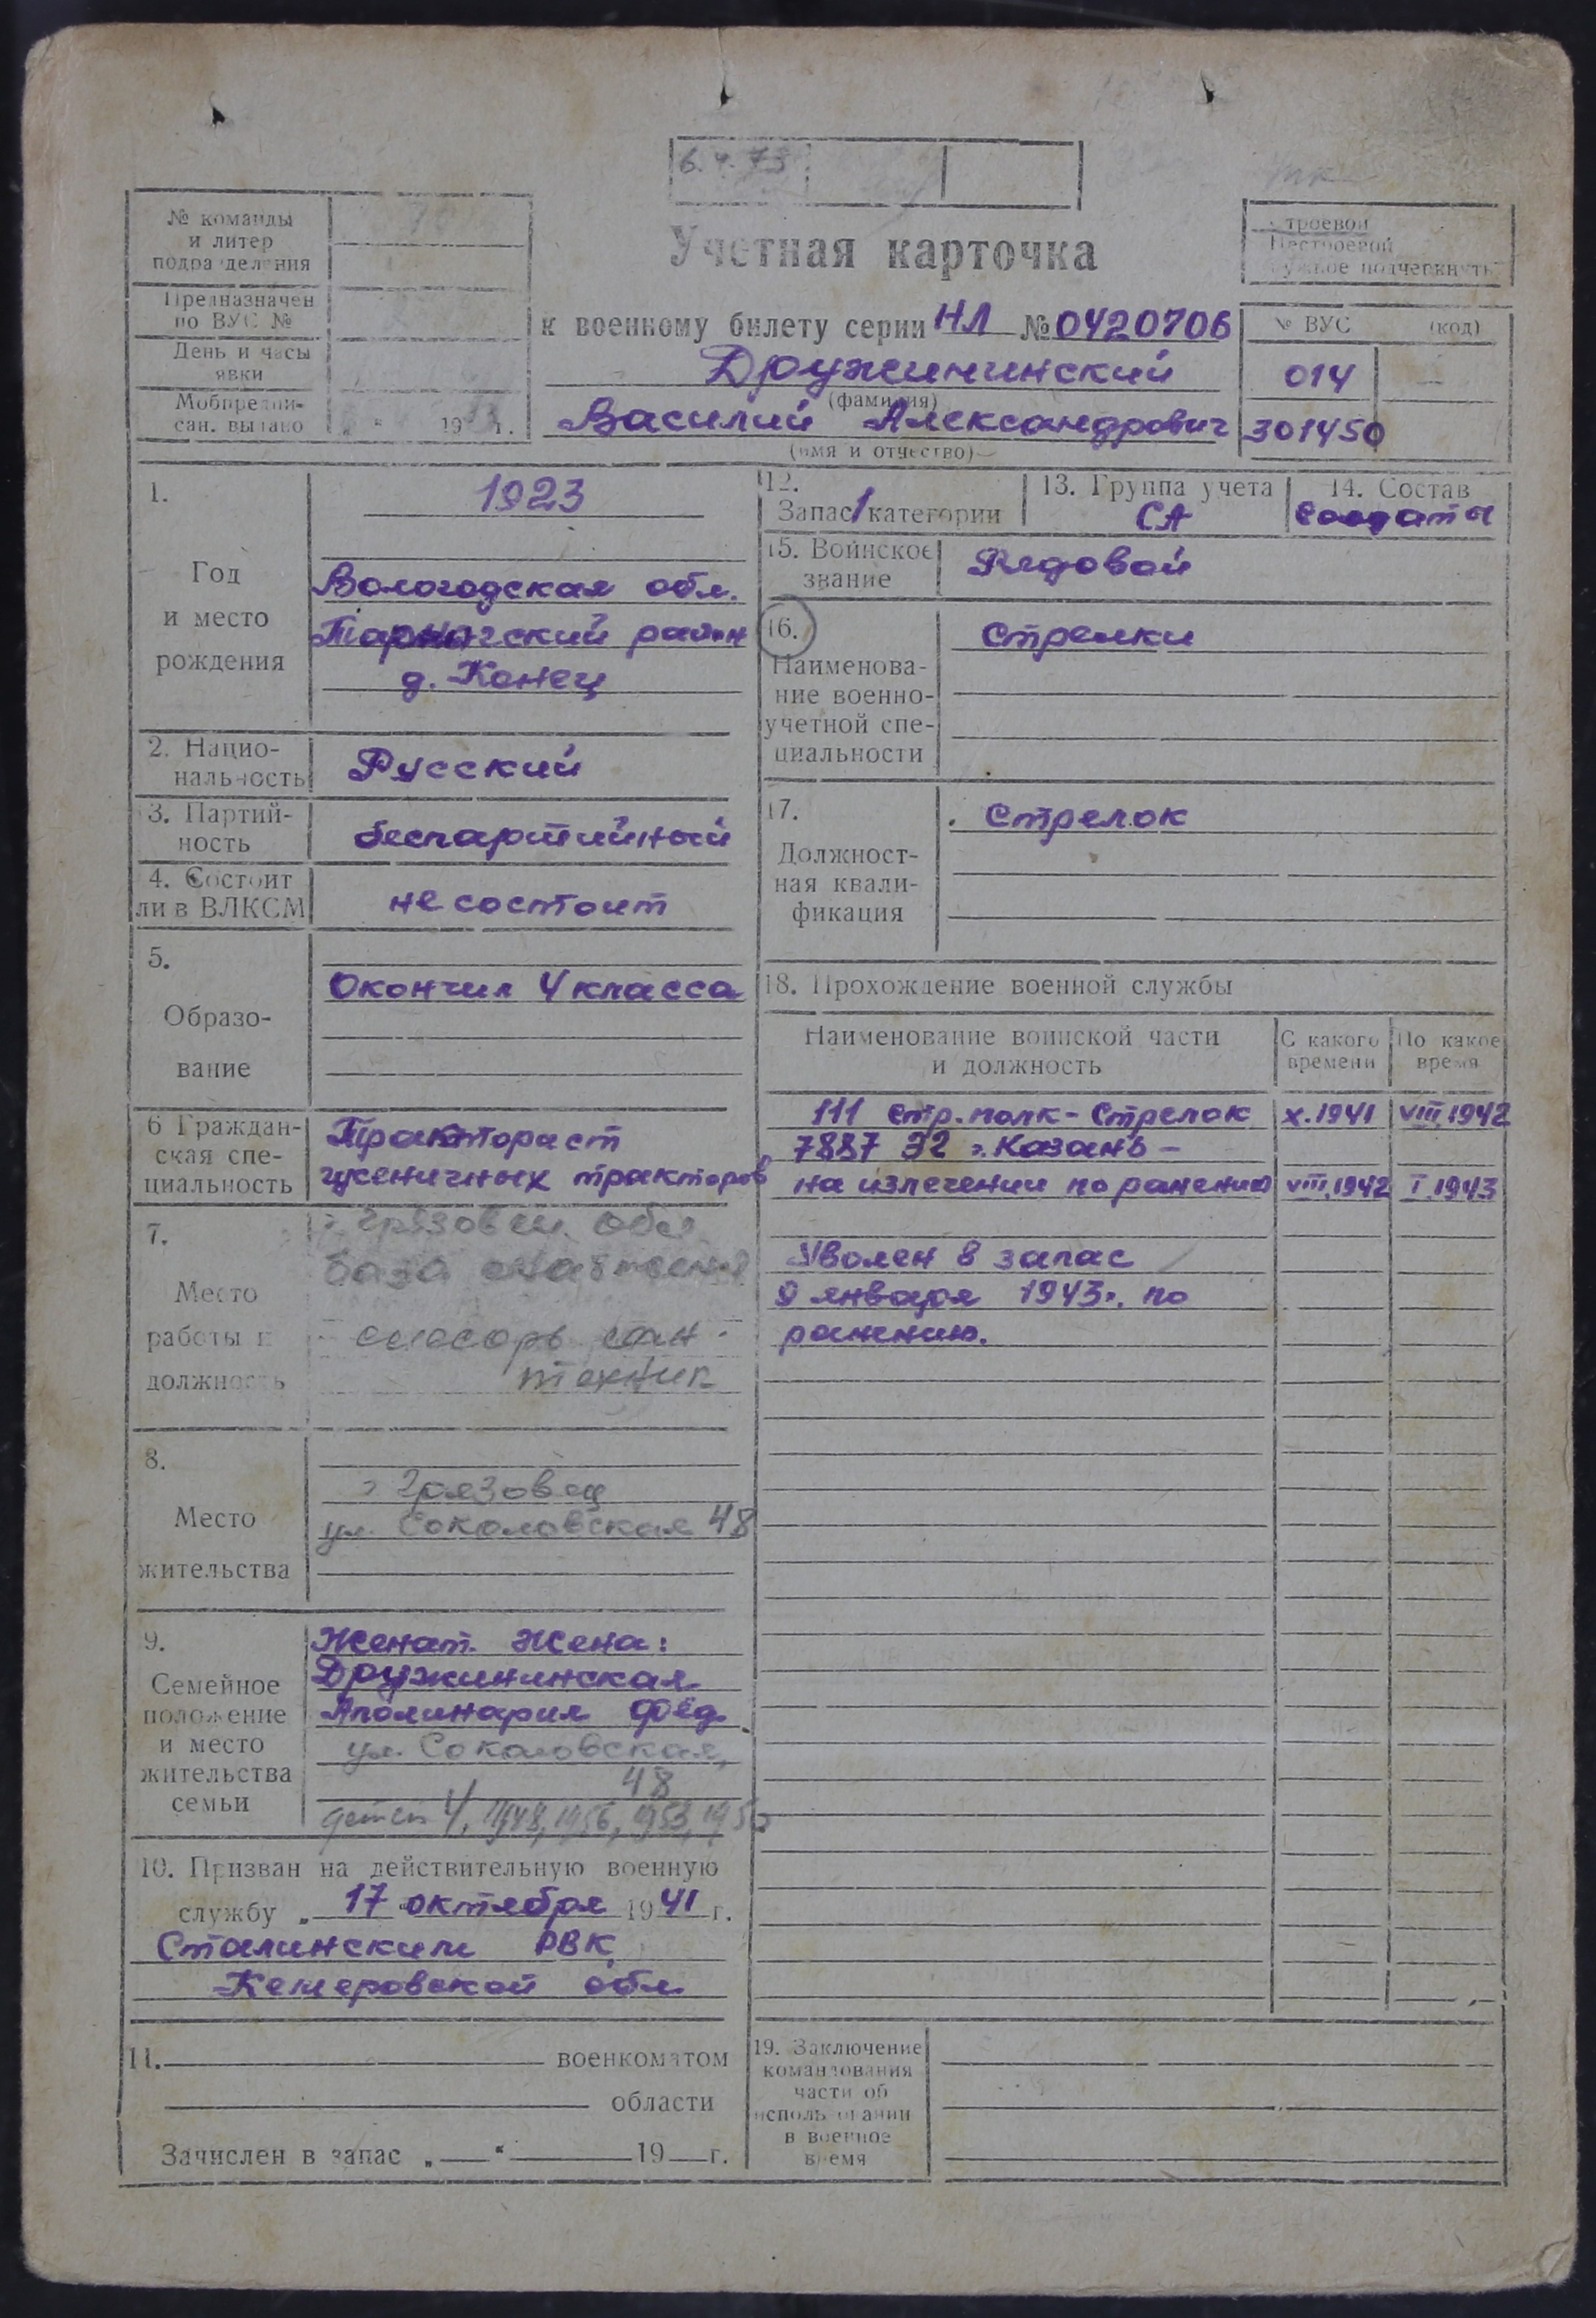 6.4.73
№ команды
и литер
подразделения
Предназначен
по ВУС №
День и часы
явки
Мобпредпи-
сан. выдано „ “ 19 г.
Учетная карточка
к военному билету серии НЛ № 0420706
Дружининский
(фамилия)
Василий Александрович
(имя и отчество)
Строевой
Нестроевой
нужное подчеркнуть
№ ВУС (код)
014
301450
1.
Год
и место
рождения
1923
Вологодская обл.
Тарногский район
д. Конец
2. Нацио-
нальность
Русский
3. Партий-
ность
беспартийный
4. Состоит
ли в ВЛКСМ
не состоит
5.
Образо-
вание
Окончил 4 класса
6 Граждан-
ская спе-
циальность
Тракторист
гусеничных тракторов
7.
Место
работы и
должность
г. Грязовец обл.
база снабжения
слесарь сан-
техник
8.
Место
жительства
г Грязовец
ул. Соколовская 48
9.
Семейное
положение
и место
жительства
семьи
Женат. Жена:
Дружининская
Аполинария Фёд.
ул. Соколовская,
48
детей 4, 1948, 1956, 1953, 1950
10. Призван на действительную военную
службу „ 17 октября 1941 г.
Сталинским РВК
Кемеровской обл.
11. военкоматом
области
Зачислен в запас „ “ 19 г.
12.
Запас 1 категории
13. Группа учета
СА
14. Состав
Солдаты
15. Воинское
звание
Рядовой
16.
Наименова-
ние военно-
учетной спе-
циальности
Стрелки
17.
Должност-
ная квали-
фикация
Стрелок
18. Прохождение военной службы
Наименование воинской части
и должность
С какого
времени
По какое
время
111 Стр. полк - Стрелок X.1941 VIII.1942
7887 ЭГ г. Казань -
на излечении по ранению VIII.1942 I.1943
Уволен в запас
9 января 1943г. по
ранению.
19. Заключение
командования
части об
использовании
в военное
время